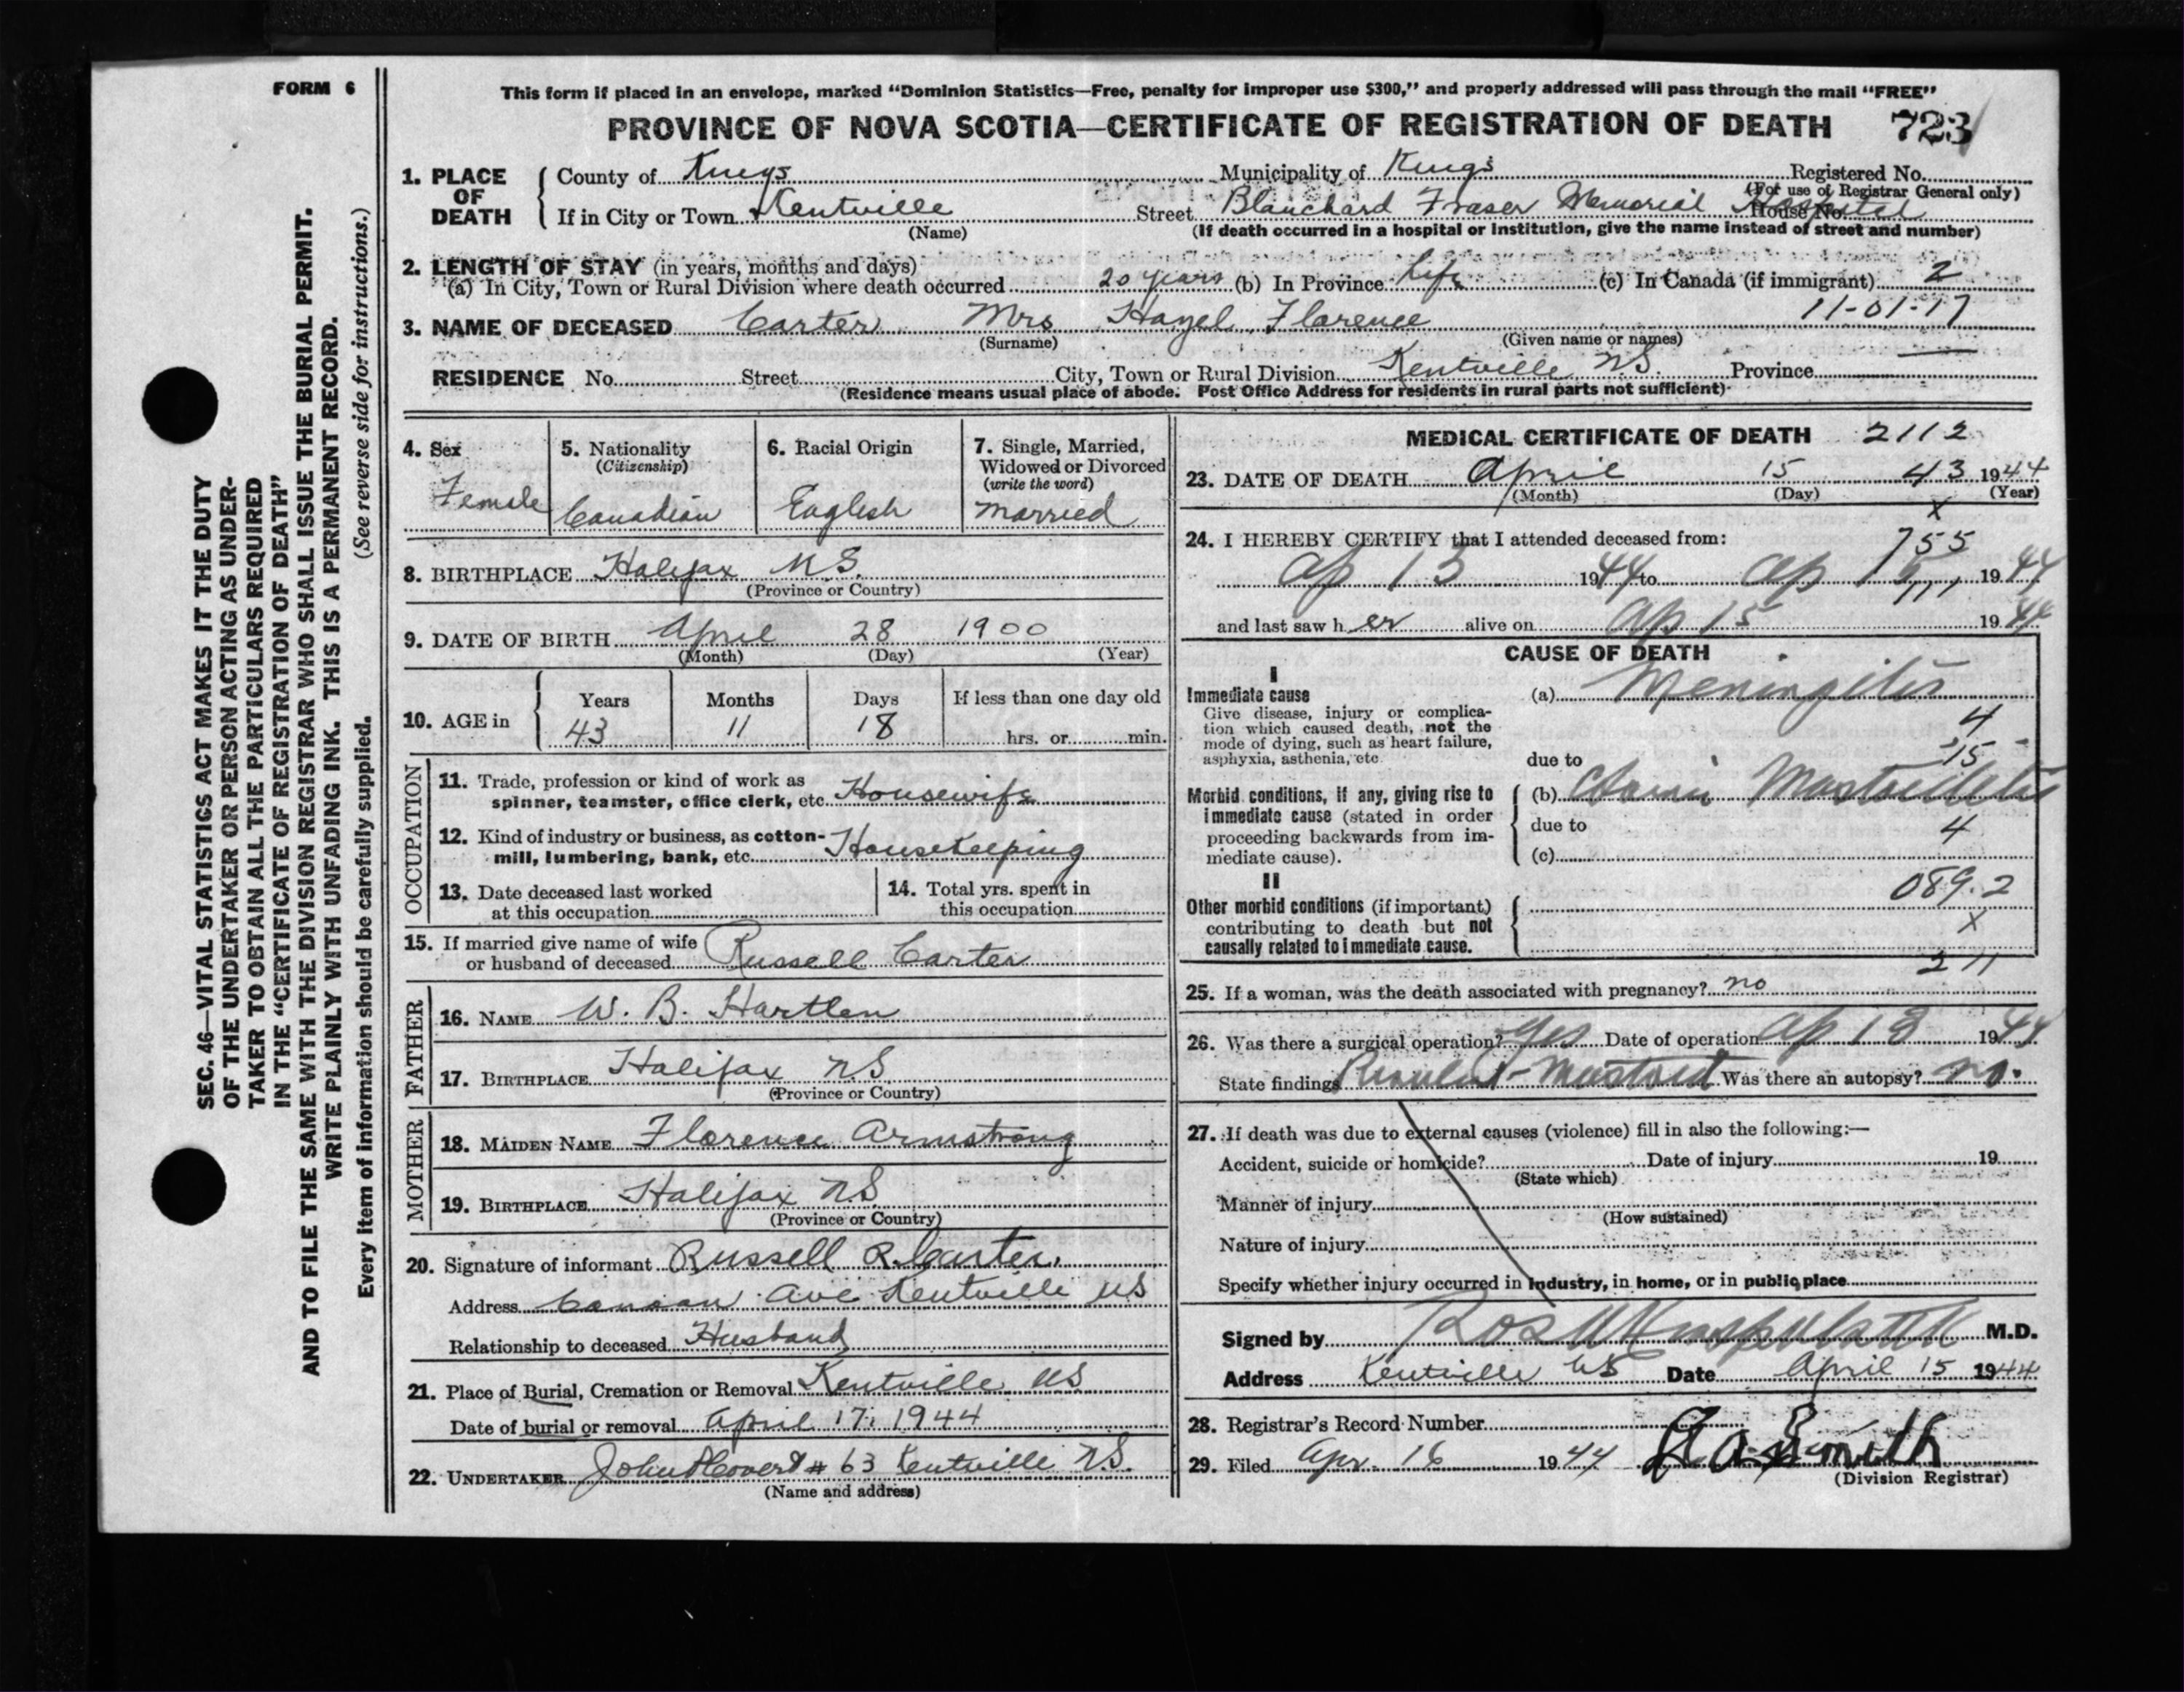 FORM 6
This form if placed in an envelope, marked "Dominion Statistics—Free, penalty for improper use $300," and properly addressed will pass through the mail "FREE"
PROVINCE OF NOVA SCOTIA—CERTIFICATE OF REGISTRATION OF DEATH 723
SEC. 46—VITAL STATISTICS ACT MAKES IT THE DUTY
OF THE UNDERTAKER OR PERSON ACTING AS UNDER-
TAKER TO OBTAIN ALL THE PARTICULARS REQUIRED
IN THE "CERTIFICATE OF REGISTRATION OF DEATH"
AND TO FILE THE SAME WITH THE DIVISION REGISTRAR WHO SHALL ISSUE THE BURIAL PERMIT.
WRITE PLAINLY WITH UNFADING INK. THIS IS A PERMANENT RECORD.
Every item of information should be carefully supplied. (See reverse side for instructions.)
1. PLACE OF DEATH
County of Kings Municipality of Kings Registered No.
(For use of Registrar General only)
If in City or Town Kentville Street Blanchard Fraser Memorial Hospital House No.
(Name) (If death occurred in a hospital or institution, give the name instead of street and number)
2. LENGTH OF STAY (in years, months and days)
(a) In City, Town or Rural Division where death occurred 20 years (b) In Province life (c) In Canada (if immigrant) 2
11-01-17
3. NAME OF DECEASED Carter Mrs Hazel Florence
(Surname) (Given name or names)
RESIDENCE No. Street City, Town or Rural Division Kentville NS. Province
(Residence means usual place of abode. Post Office Address for residents in rural parts not sufficient)
4. Sex
Female
5. Nationality
(Citizenship)
Canadian
6. Racial Origin
English
7. Single, Married,
Widowed or Divorced
(write the word)
Married
8. BIRTHPLACE Halifax N.S.
(Province or Country)
9. DATE OF BIRTH April 28 1900
(Month) (Day) (Year)
10. AGE in
Years Months Days If less than one day old
43 11 18 hrs. or min.
OCCUPATION
11. Trade, profession or kind of work as
spinner, teamster, office clerk, etc. Housewife
12. Kind of industry or business, as cotton-
mill, lumbering, bank, etc. Housekeeping
13. Date deceased last worked
at this occupation
14. Total yrs. spent in
this occupation
15. If married give name of wife
or husband of deceased Russell Carter
FATHER
16. NAME W. B. Hartlen
17. BIRTHPLACE Halifax NS
(Province or Country)
MOTHER
18. MAIDEN NAME Florence Armstrong
19. BIRTHPLACE Halifax NS
(Province or Country)
20. Signature of informant Russell R. Carter
Address Canaan Ave Kentville NS
Relationship to deceased Husband
21. Place of Burial, Cremation or Removal Kentville NS
Date of burial or removal April 17, 1944
22. UNDERTAKER # 63 Kentville NS.
(Name and address)
MEDICAL CERTIFICATE OF DEATH 2112
23. DATE OF DEATH April 15 43 1944
(Month) (Day) (Year)
X
24. I HEREBY CERTIFY that I attended deceased from:
755
Ap 13 1944 to Ap 15 1944
and last saw her alive on Ap 15 1944
CAUSE OF DEATH
I
Immediate cause
Give disease, injury or complica-
tion which caused death, not the
mode of dying, such as heart failure,
asphyxia, asthenia, etc.
(a) Meningitis
4
15
due to
Morbid conditions, if any, giving rise to
immediate cause (stated in order
proceeding backwards from im-
mediate cause).
(b) Mastoiditis
due to 4
(c)
II
Other morbid conditions (if important)
contributing to death but not
causally related to immediate cause.
089.2
X
211
25. If a woman, was the death associated with pregnancy? no
26. Was there a surgical operation? yes Date of operation Ap 13 1944
State findings Mastoid Was there an autopsy? no.
27. If death was due to external causes (violence) fill in also the following:—
Accident, suicide or homicide? Date of injury 19
(State which)
Manner of injury
(How sustained)
Nature of injury
Specify whether injury occurred in industry, in home, or in public place
Signed by M.D.
Address Kentville NS Date April 15 1944
28. Registrar's Record Number
29. Filed Apr. 16 1944 Smith
(Division Registrar)